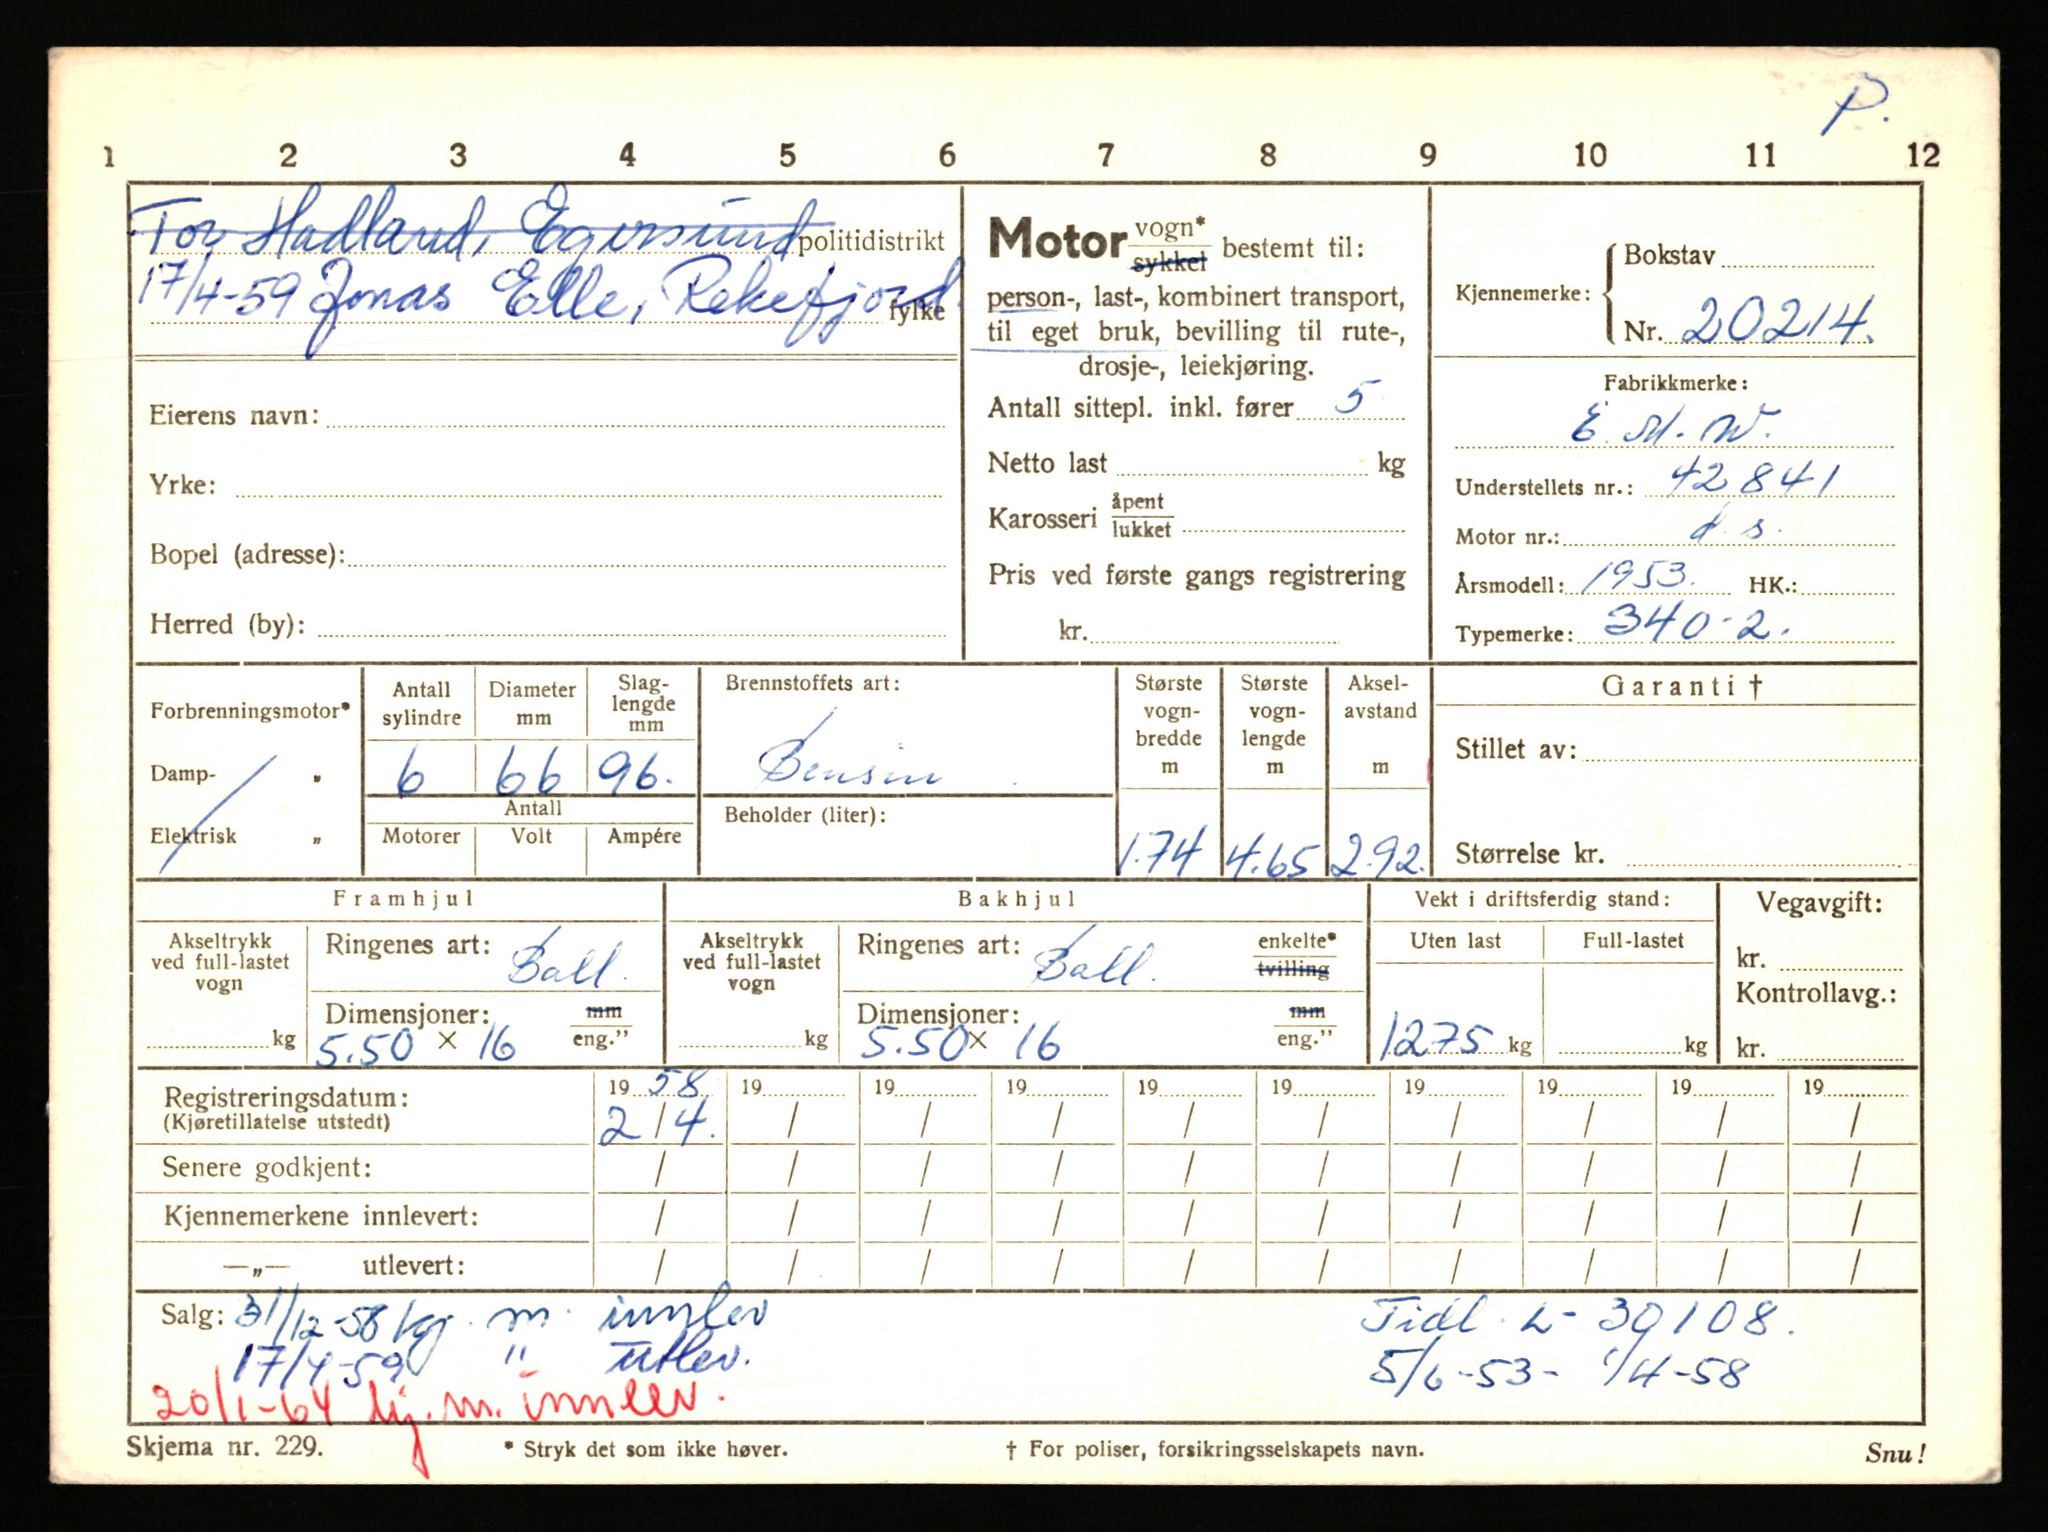 P.
1 2 3 4 5 6 7 8 9 10 11 12
Tor Hadland, Egersund politidistrikt
17/4-59 Jonas Elle, Rekefjord. fylke
Eierens navn:
Yrke:
Bopel (adresse):
Herred (by):
Motor vogn* sykkel bestemt til:
person-, last-, kombinert transport,
til eget bruk, bevilling til rute-,
drosje-, leiekjøring.
Antall sittepl. inkl. fører 5
Netto last kg
Karosseri åpent lukket
Pris ved første gangs registrering
kr.
Kjennemerke: Bokstav
Nr. 20214.
Fabrikkmerke:
E. M. W.
Understellets nr.: 42841
Motor nr.: d.s.
Årsmodell: 1953. HK.:
Typemerke: 340-2.
Forbrenningsmotor*
Damp- „
Elektrisk „
Antall sylindre
Diameter mm
Slag-
lengde
mm
6 66 96.
Antall
Motorer Volt Ampére
Brennstoffets art:
Bensin
Beholder (liter):
Største
vogn-
bredde
m
1.74
Største
vogn-
lengde
m
4.65
Aksel-
avstand
m
2.92.
Garanti †
Stillet av:
Størrelse kr.
Framhjul
Akseltrykk
ved full-lastet
vogn
kg
Ringenes art: Ball.
Dimensjoner: mm eng.”
5.50 × 16
Bakhjul
Akseltrykk
ved full-lastet
vogn
kg
Ringenes art: Ball. enkelte* tvilling
Dimensjoner: mm eng.”
5.50 × 16
Vekt i driftsferdig stand:
Uten last Full-lastet
1275 kg kg
Vegavgift:
kr.
Kontrollavg.:
kr.
Registreringsdatum: 19 58 19 19 19 19 19 19 19 19 19
(Kjøretillatelse utstedt) 2/4. / / / / / / / / /
Senere godkjent: / / / / / / / / / /
Kjennemerkene innlevert: / / / / / / / / / /
—„— utlevert: / / / / / / / / / /
Salg: 31/12-58 kj. m. innlev
17/4-59 " utlev.
20/1-64 kj. m. innlev.
Tidl. L-30108.
5/6-53- 1/4-58
Skjema nr. 229. * Stryk det som ikke høver. † For poliser, forsikringsselskapets navn. Snu!